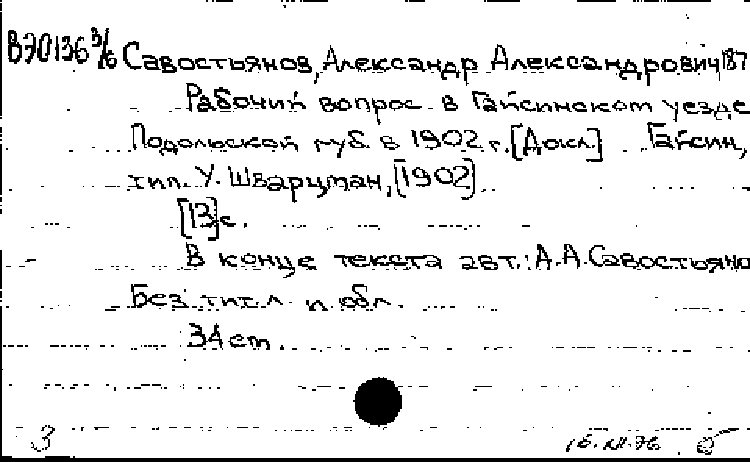 В70136 3/6 Савостьянов, Александр Александрович 187
Рабочий вопрос в Гайсинском уезде
Подольской губ. в 1902 г. [Докл] Гайсин,
тип. У. Шварцман, [1902]
[13]с.
В конце текста авт.: А.А.Савостьяно
Без тит.л. и обл.
34 см.
3 16.XII.76